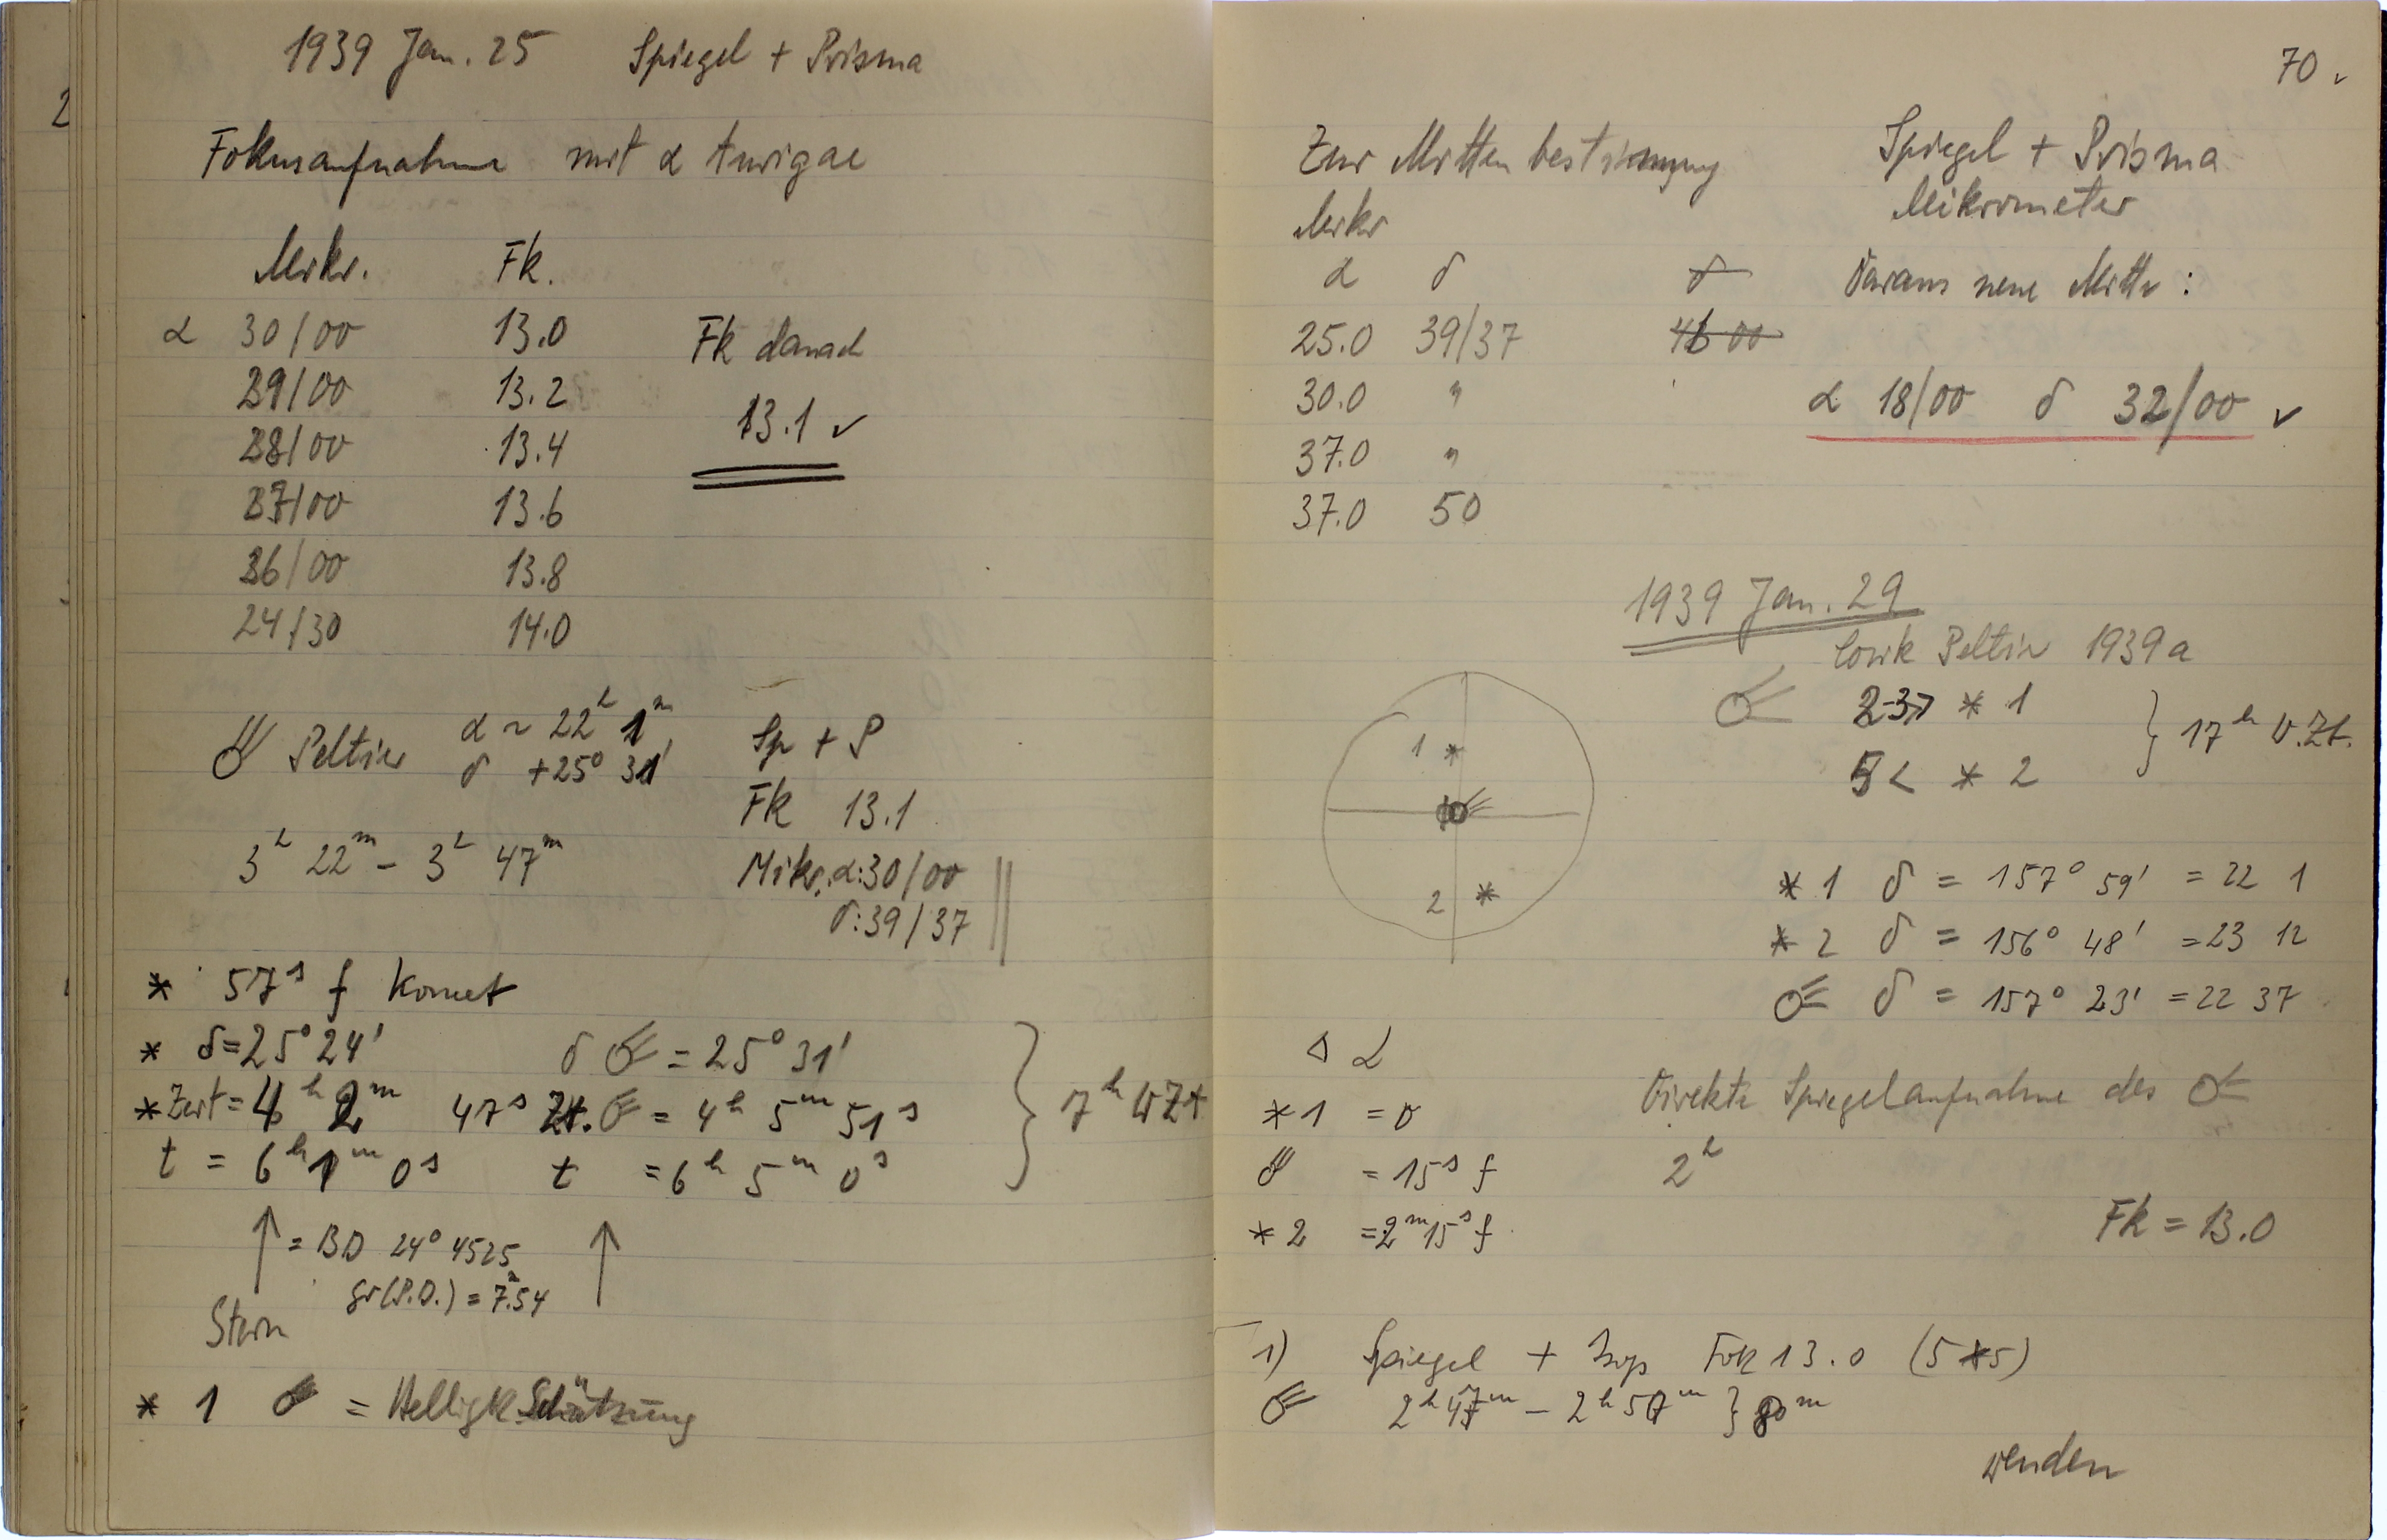 1939 Jan. 25 Spiegel + Prisma
Fokusaufnahme mit α Aurigae
Mikr. Fk.
α 30/00 13.0
29/00 13.2
28/00 13.4
27/00 13.6
26/00 13.8
24/30 14.0
Fk danach
13.1 ✓
☄ Peltier α ~ 22h 1m
δ +25° 31'
3h 22m - 3h 47m
Sp + P
Fk 13.1
Mikr. α: 30/00
δ: 39/37
* 57s f Komet
* δ=25° 24' δ ☄ = 25° 31'
* Zeit = 4h 2m 47s Zt. ☄ = 4h 5m 51s
t = 6h 1m 0s t = 6h 5m 0s
} 7h WZt
↑ = BD 24° 4525 ↑
gr(P.D.) = 7.m54
Stern
* 1 ☄ = Helligk. Schätzung
70 ✓
Zur Mittenbestimmung
Mikr
α δ δ
25.0 39/37 46 00
30.0 "
37.0 "
37.0 50
Spiegel + Prisma
Mikrometer
Daraus neue Mitte:
α 18/00 δ 32/00 ✓
1939 Jan. 29
Peltier 1939a
☄ * 1
5 < * 2
} 17h W.Zt.
1 *
2 *
* 1 δ = 157° 59' = 22 1
* 2 δ = 156° 48' = 23 12
☄ δ = 157° 23' = 22 37
Δ α
* 1 = 0
☄ = 15s f
* 2 = 2m 15s f
Direkte Spiegelaufnahme des ☄
2h
Fk = 13.0
1) Spiegel + Fok 13.0 (5*5)
☄ 2h 47m - 2h 57m }
wenden